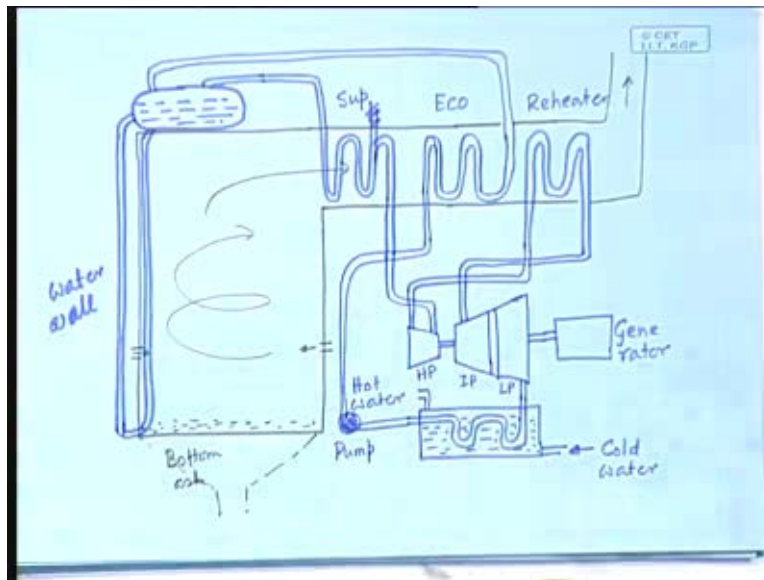 © CET
I.I.T. KGP
Sup
Eco
Reheater
water
wall
HP
IP
LP
Gene
rator
Hot
water
Pump
Cold
water
Bottom
ash